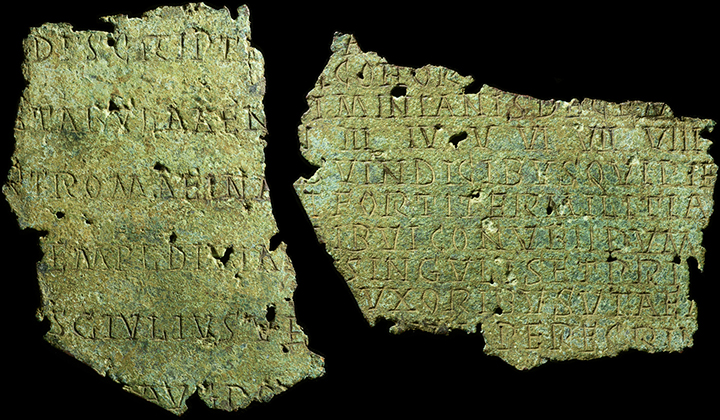 DESCRIPT E
TABVLA AEN
T ROMAE IN M
TEMPL DIVI M
S G IVLIVS VE
A
COHOR
EMINIANIS DE
III IV V VI VII VIII
VINDICIBVS QVI PI
FORTITER MILITIA
TRIBVI CONVB DVM
SINGVLIS ET PRI
VXORIBVS VT AE
PEREGRI